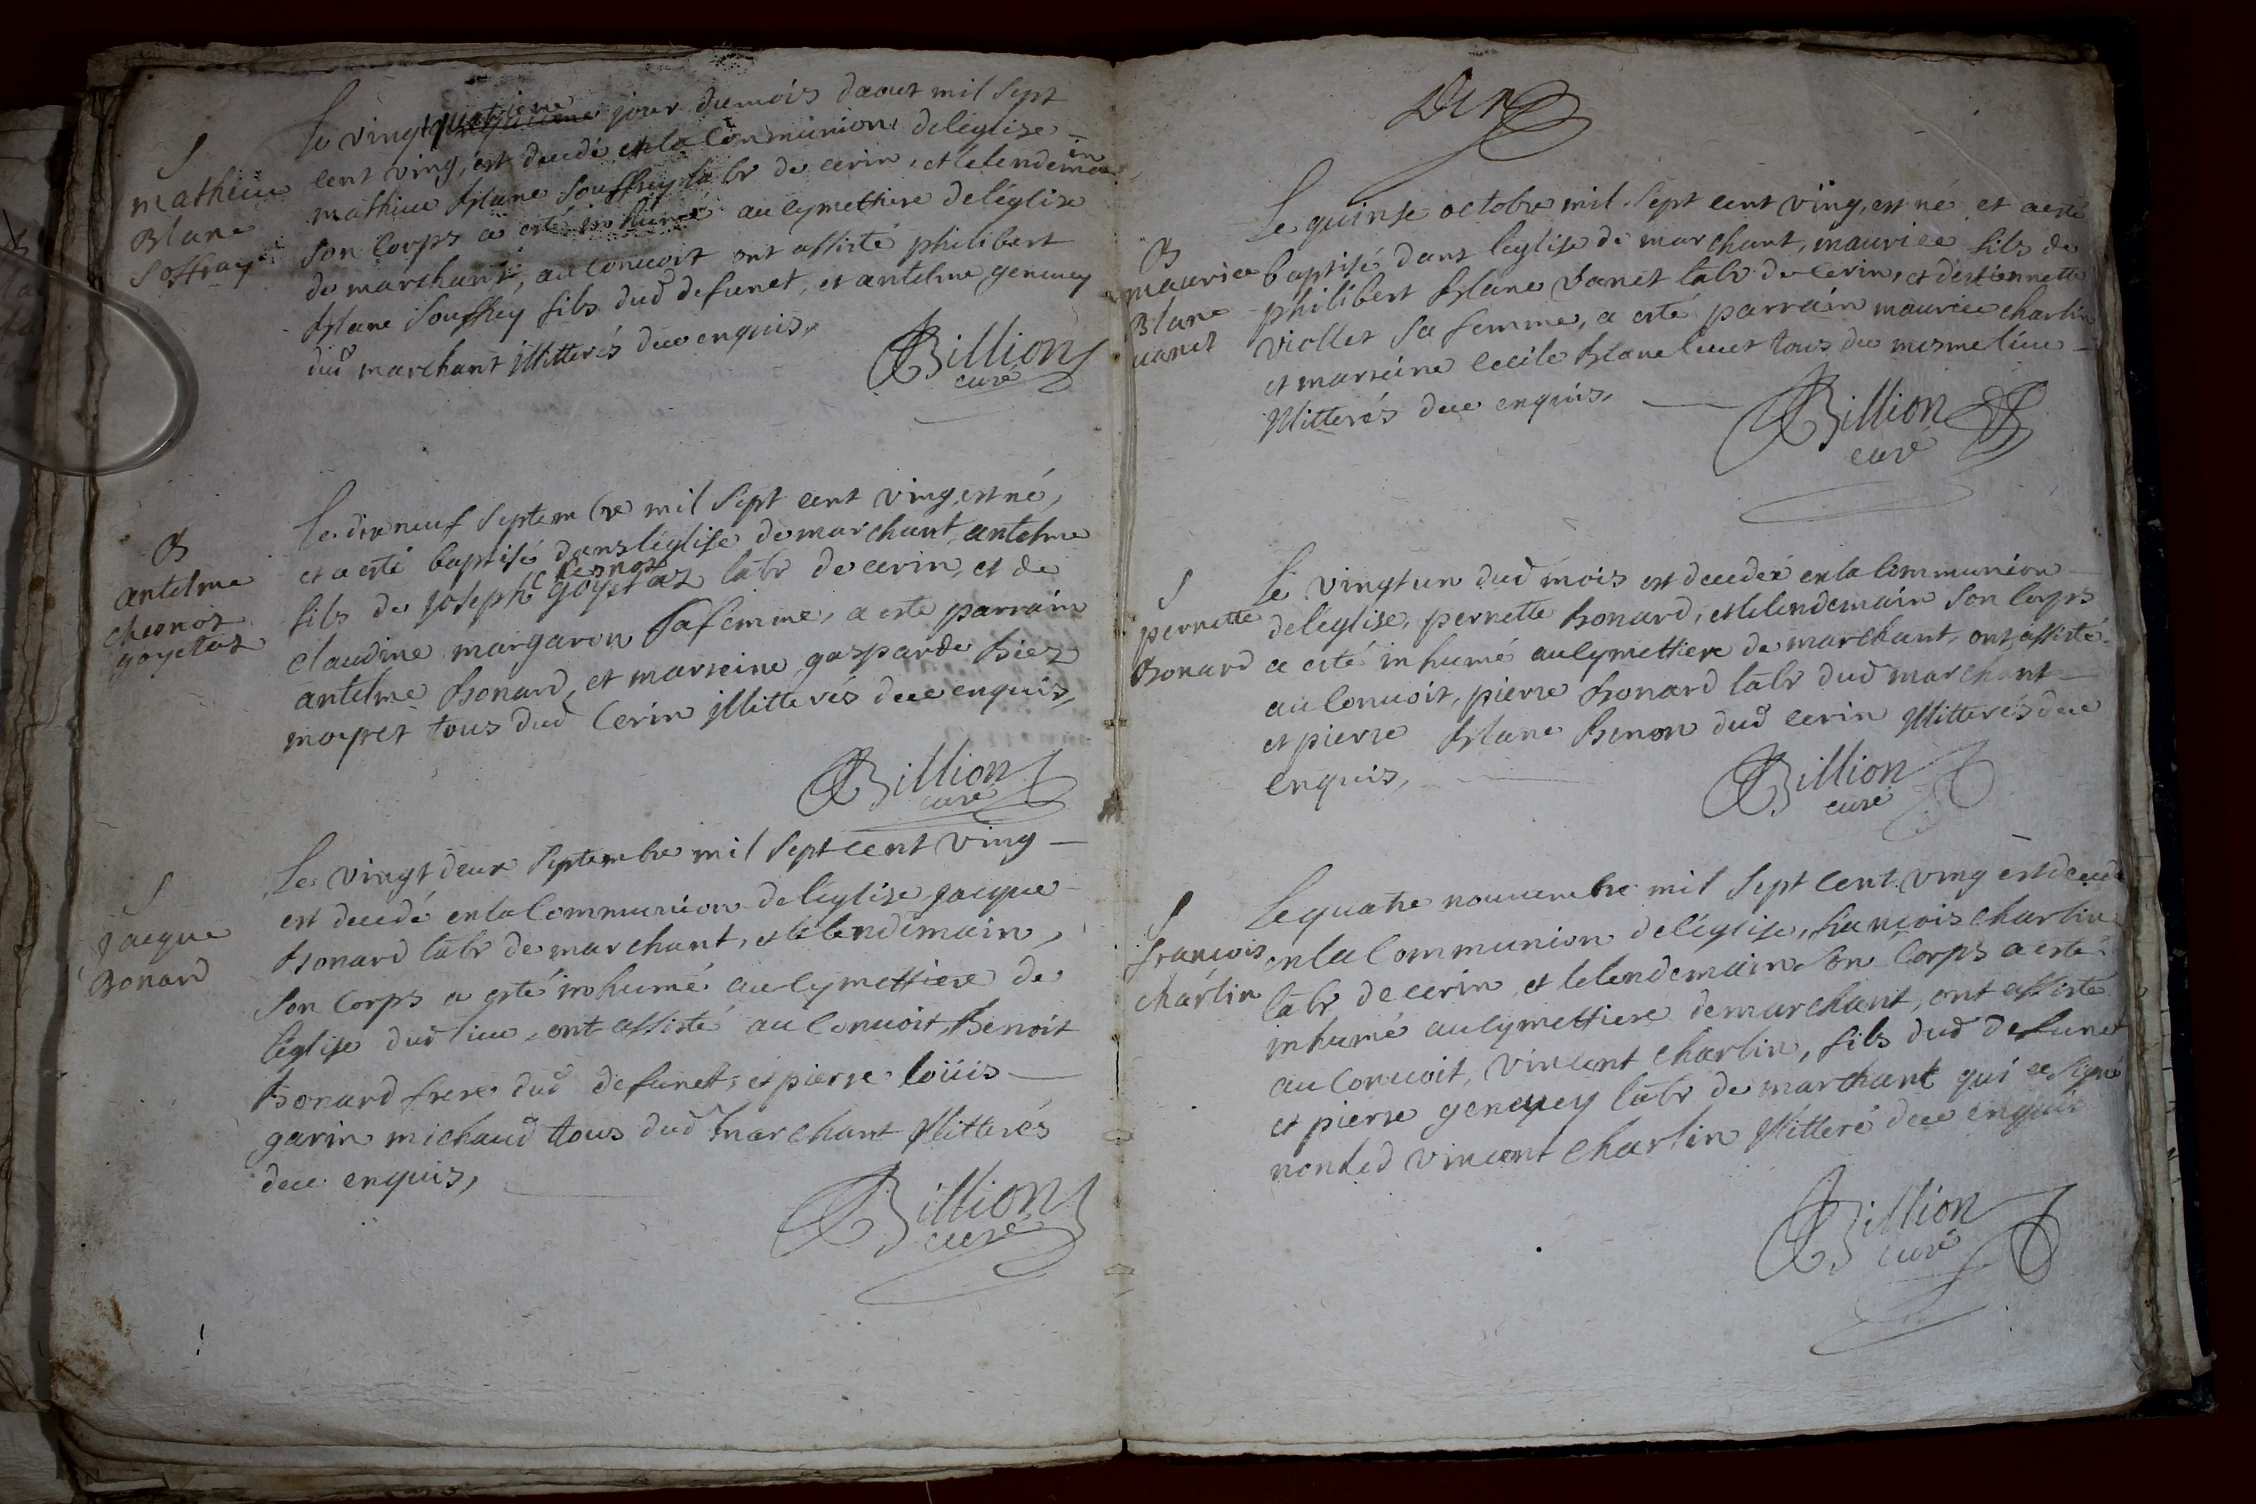 S
mathieu
Blanc
Soffray
Le vingt quatrieme jour du mois daout mil sept
cent ving, est decedé en la Communion de leglise
mathieu blanc souffrey labr de cerin, et le lendemain
son corps a esté inhumé au cymettiere de léglise
de marchant, au convoit ont assisté philibert
blanc souffrey fils dud defunct, et antelme genevey
dud marchant illitterés de ce enquis,
Billion
curé
B
antelme
chesnoz
goyetaz
Le dixneuf septembre mil sept cent ving, est né,
et a esté baptisé dans léglise de marchant, antelme
fils de joseph chesnoz goyetaz labr de cerin, et de
claudine margaron sa femme, a esté parrain
antelme bonard, et marreine gasparde biez
mayret tous dud Cerin illitterés de ce enquis,
Billion
curé
S
jacque
Bonard
Le vingt deux septembre mil sept cent ving
est decedé en la Communion de leglise jacque
bonard labr de marchant, et le lendemain,
son corps a esté inhumé au cymettiere de
léglise dud lieu, ont assisté au convoit, benoit
bonard frere dud defunct, et pierre loüis
garin michaud tous dud marchant illitterés
de ce enquis,
Billion
curé
B
maurice
Blanc
vanet
Le quinse octobre mil sept cent ving, est né et a esté
baptisé dans léglise de marchant, maurice fils de
philibert blanc vanet labr de Cerin, et d'estiennette
viollet sa femme, a esté parrain maurice charlin
et marreine cecile blanc tous du mesme lieu
illitterés de ce enquis,
Billion
curé
S
pernette
Bonard
Le vingt un dud mois est decedée en la Communion
de léglise, pernette bonard, et le lendemain son corps
a esté inhumé au cymettiere de marchant, ont assisté
au convoit, pierre bonard labr dud marchant
et pierre blanc benon dud cerin illitterés de ce
enquis,
Billion
curé
S
francois
charlin
Le quatre novembre mil sept cent ving est decedé
en la Communion de léglise, francois charlin
labr de cerin, et le lendemain son corps a esté
inhumé au cymettiere de marchant, ont assisté
au convoit, vincent charlin, fils dud defunct
et pierre genevey labr de marchant qui a signé
non led vincent charlin illitteré de ce enquis
Billion
curé